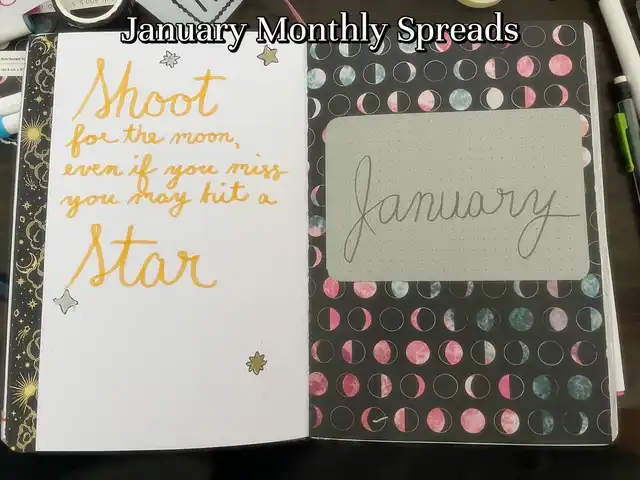 January Monthly Spreads
Shoot
for the moon,
even if you miss
you may hit a
Star
January